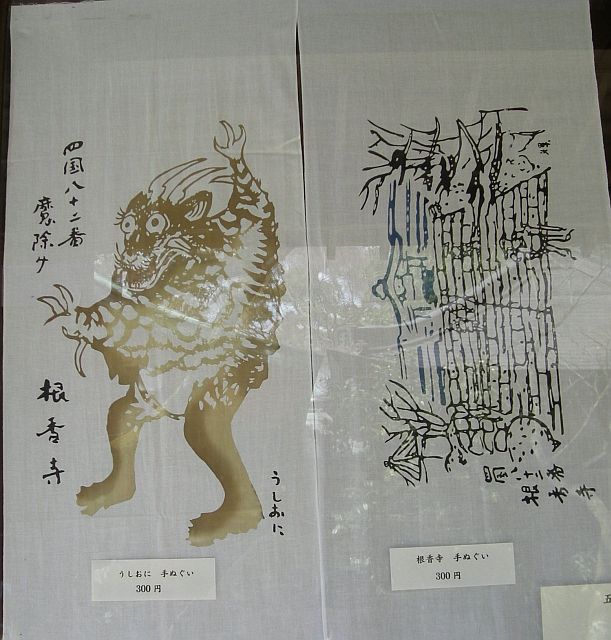 四国八十二番
魔除け
根香寺
うしおに
うしおに 手ぬぐい
300円
四国八十二番
根香寺
根香寺 手ぬぐい
300円
五